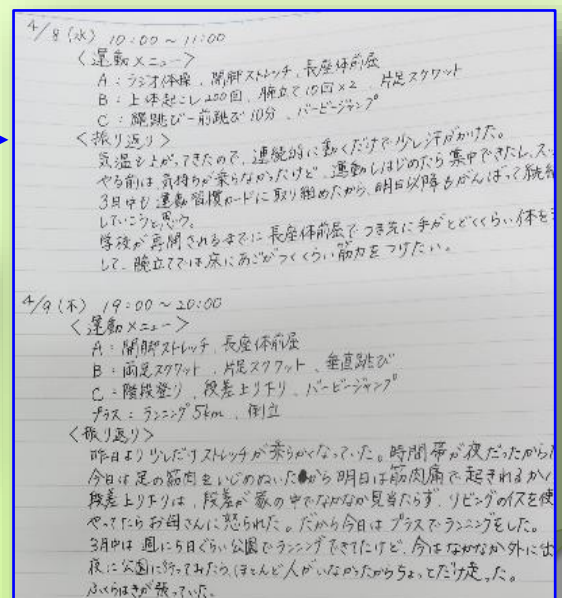 4/8(水) 10:00～11:00
<運動メニュー>
A:ラジオ体操、開脚ストレッチ、長座体前屈
B:上体起こし200回、腕立て10回×2、片足スクワット
C:縄跳び-前跳び10分、バーピージャンプ
<振り返り>
気温も上がってきたので、連続的に動くだけで少し汗がかけた。
やる前は気持ちが乗らなかったけど、運動しはじめたら集中できたし、
3月中も運動習慣カードに取り組めたから、明日以降もがんばって
していこうと思う。
学校が再開されるまでに長座体前屈でつま先に手がとどくくらい体を
して、腕立てでは床にあごがつくくらい筋力をつけたい。
4/9(木) 19:00～20:00
<運動メニュー>
A:開脚ストレッチ、長座体前屈
B:両足スクワット、片足スクワット、垂直跳び
C:階段登り、段差上り下り、バーピージャンプ
プラス:ランニング5km、倒立
<振り返り>
昨日より少しだけストレッチが柔らかくなっていた。時間帯が夜だったから
今日は足の筋肉をいじめぬいたから明日は筋肉痛で起きれるか
段差上り下りは、段差が家の中でなかなか見当たらず、リビングのイスを使
やってたらお母さんに怒られた。だから今日はプラスでランニングをした。
3月中は週に5日ぐらい公園でランニングできてたけど、今はなかなか外に出
夜に公園に行ってみたら、ほとんど人がいなかったからちょっとだけ走った。
ふくらはぎが張っていた。